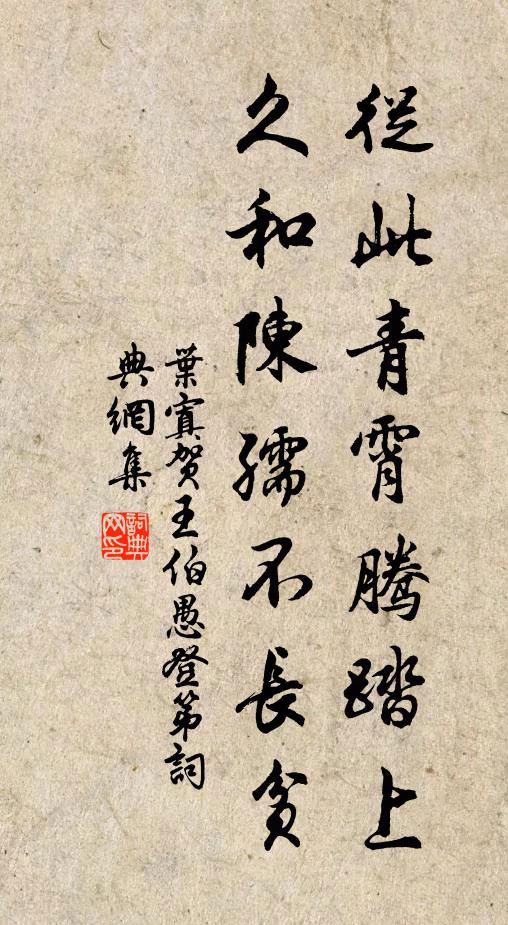 從此青霄騰踏上
久和陳孺不長貧
葉寘賀王伯愚登第詞
典網集
詞典網印